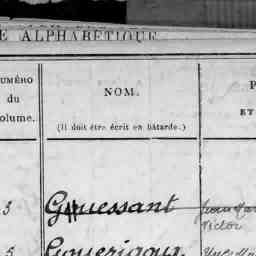 E ALPHABÉTIQUE
UMÉRO
du
olume.
NOM.
(Il doit être écrit en bâtarde.)
P
ET
3
Gouessant
Victor
5